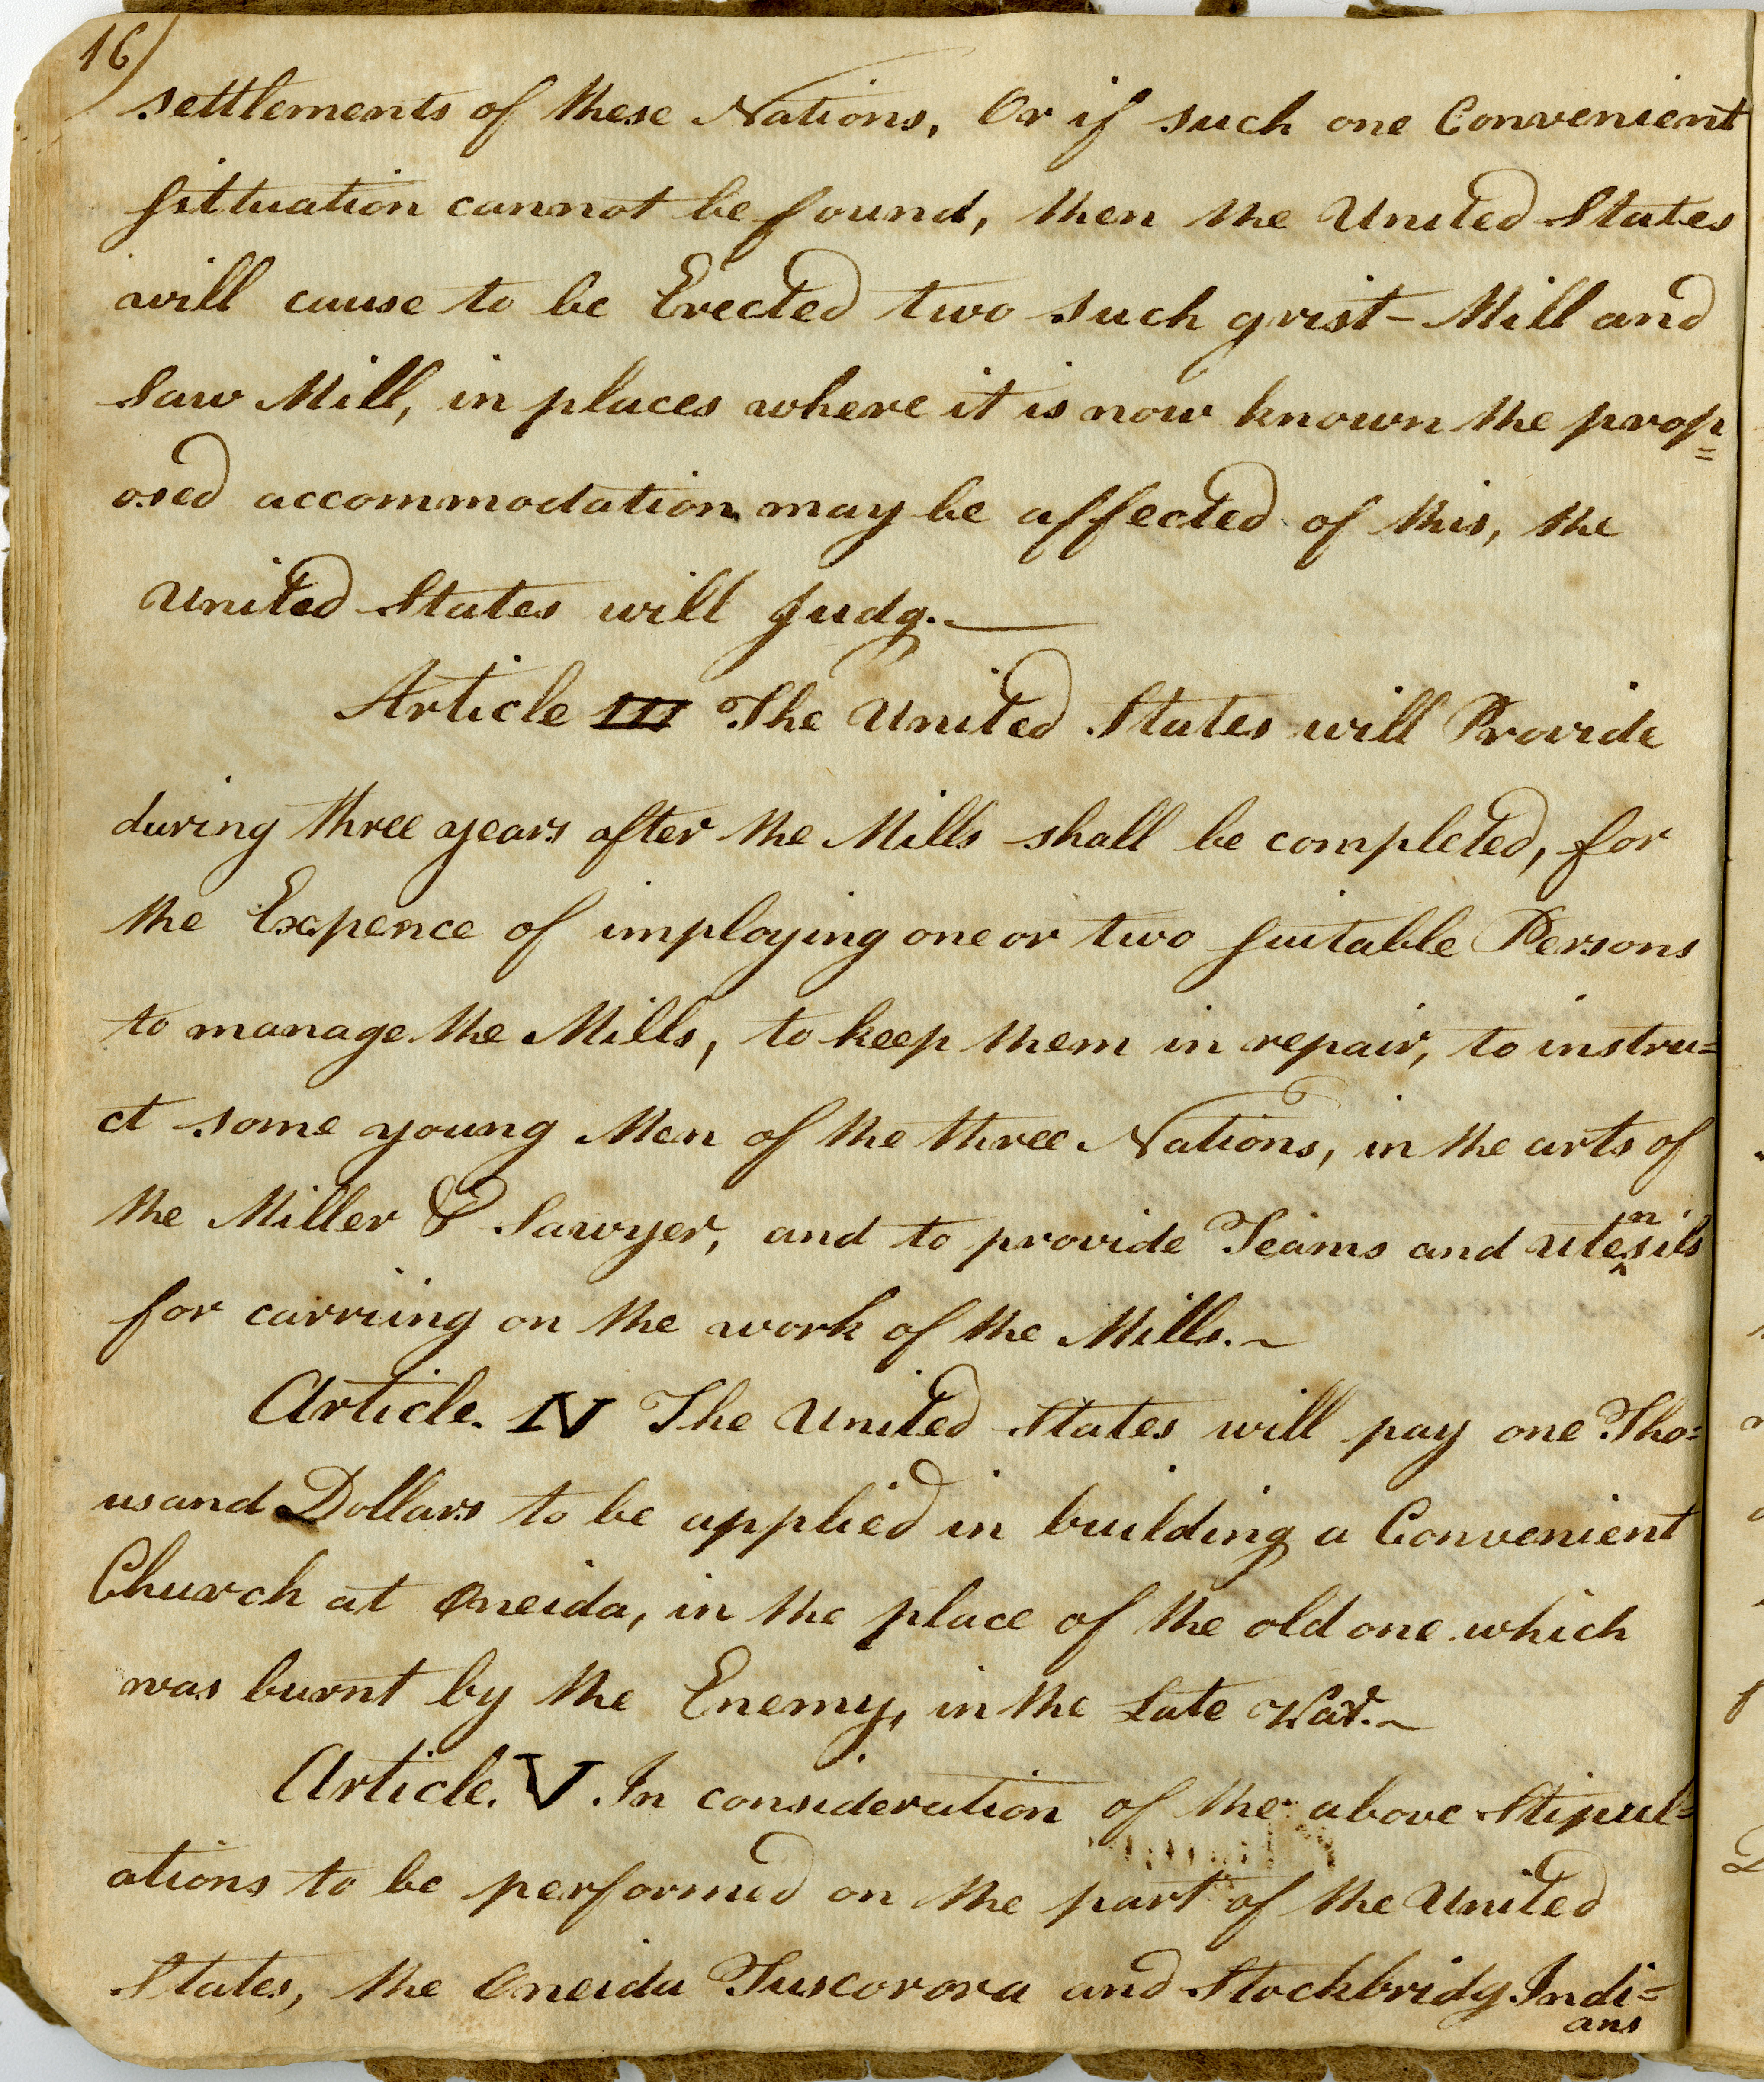 16
settlements of these Nations, Or if such one Convenient
situation cannot be found, then the United States
will cause to be Erected two such grist-Mill and
Saw Mill, in places where it is now known the prop=
osed accommodation may be affected of this, the
United States will Judg.—
Article III The United States will Provide
during three years after the Mills shall be completed, for
the Expence of imploying one or two suitable Persons
to manage the Mills, to keep them in repair, to instru=
ct some young Men of the three Nations, in the arts of
the Miller & Sawyer, and to provide Teams and utensils
for carriing on the work of the Mills.~
Article. IV The United States will pay one Tho=
usand Dollars to be applied in building a Convenient
Church at Oneida, in the place of the old one which
was burnt by the Enemy, in the Late War.~
Article. V. In consideration of the above Stipul=
ations to be performed on the part of the United
States, the Oneida Tuscorora and Stockbridg Indi=
ans